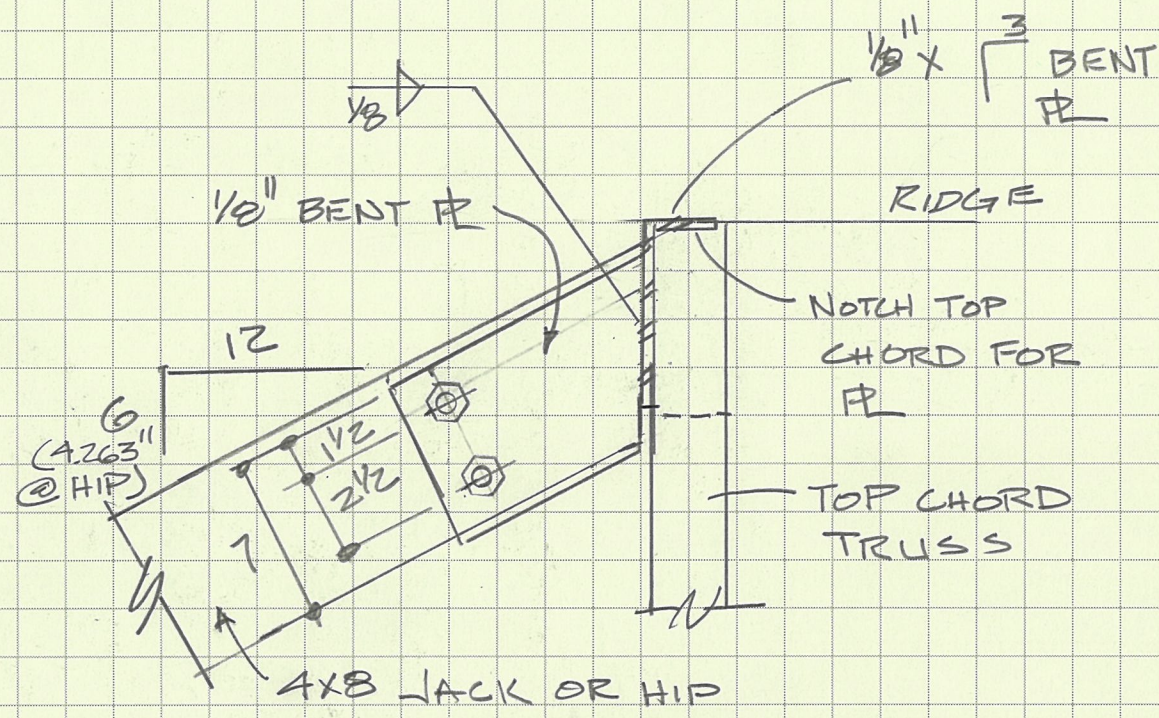 1/8" X 3 BENT
PL
1/8
1/8" BENT PL
RIDGE
12
NOTCH TOP
CHORD FOR
PL
6
(4.263"
@ HIP)
1 1/2
2 1/2
7
TOP CHORD
TRUSS
4X8 JACK OR HIP